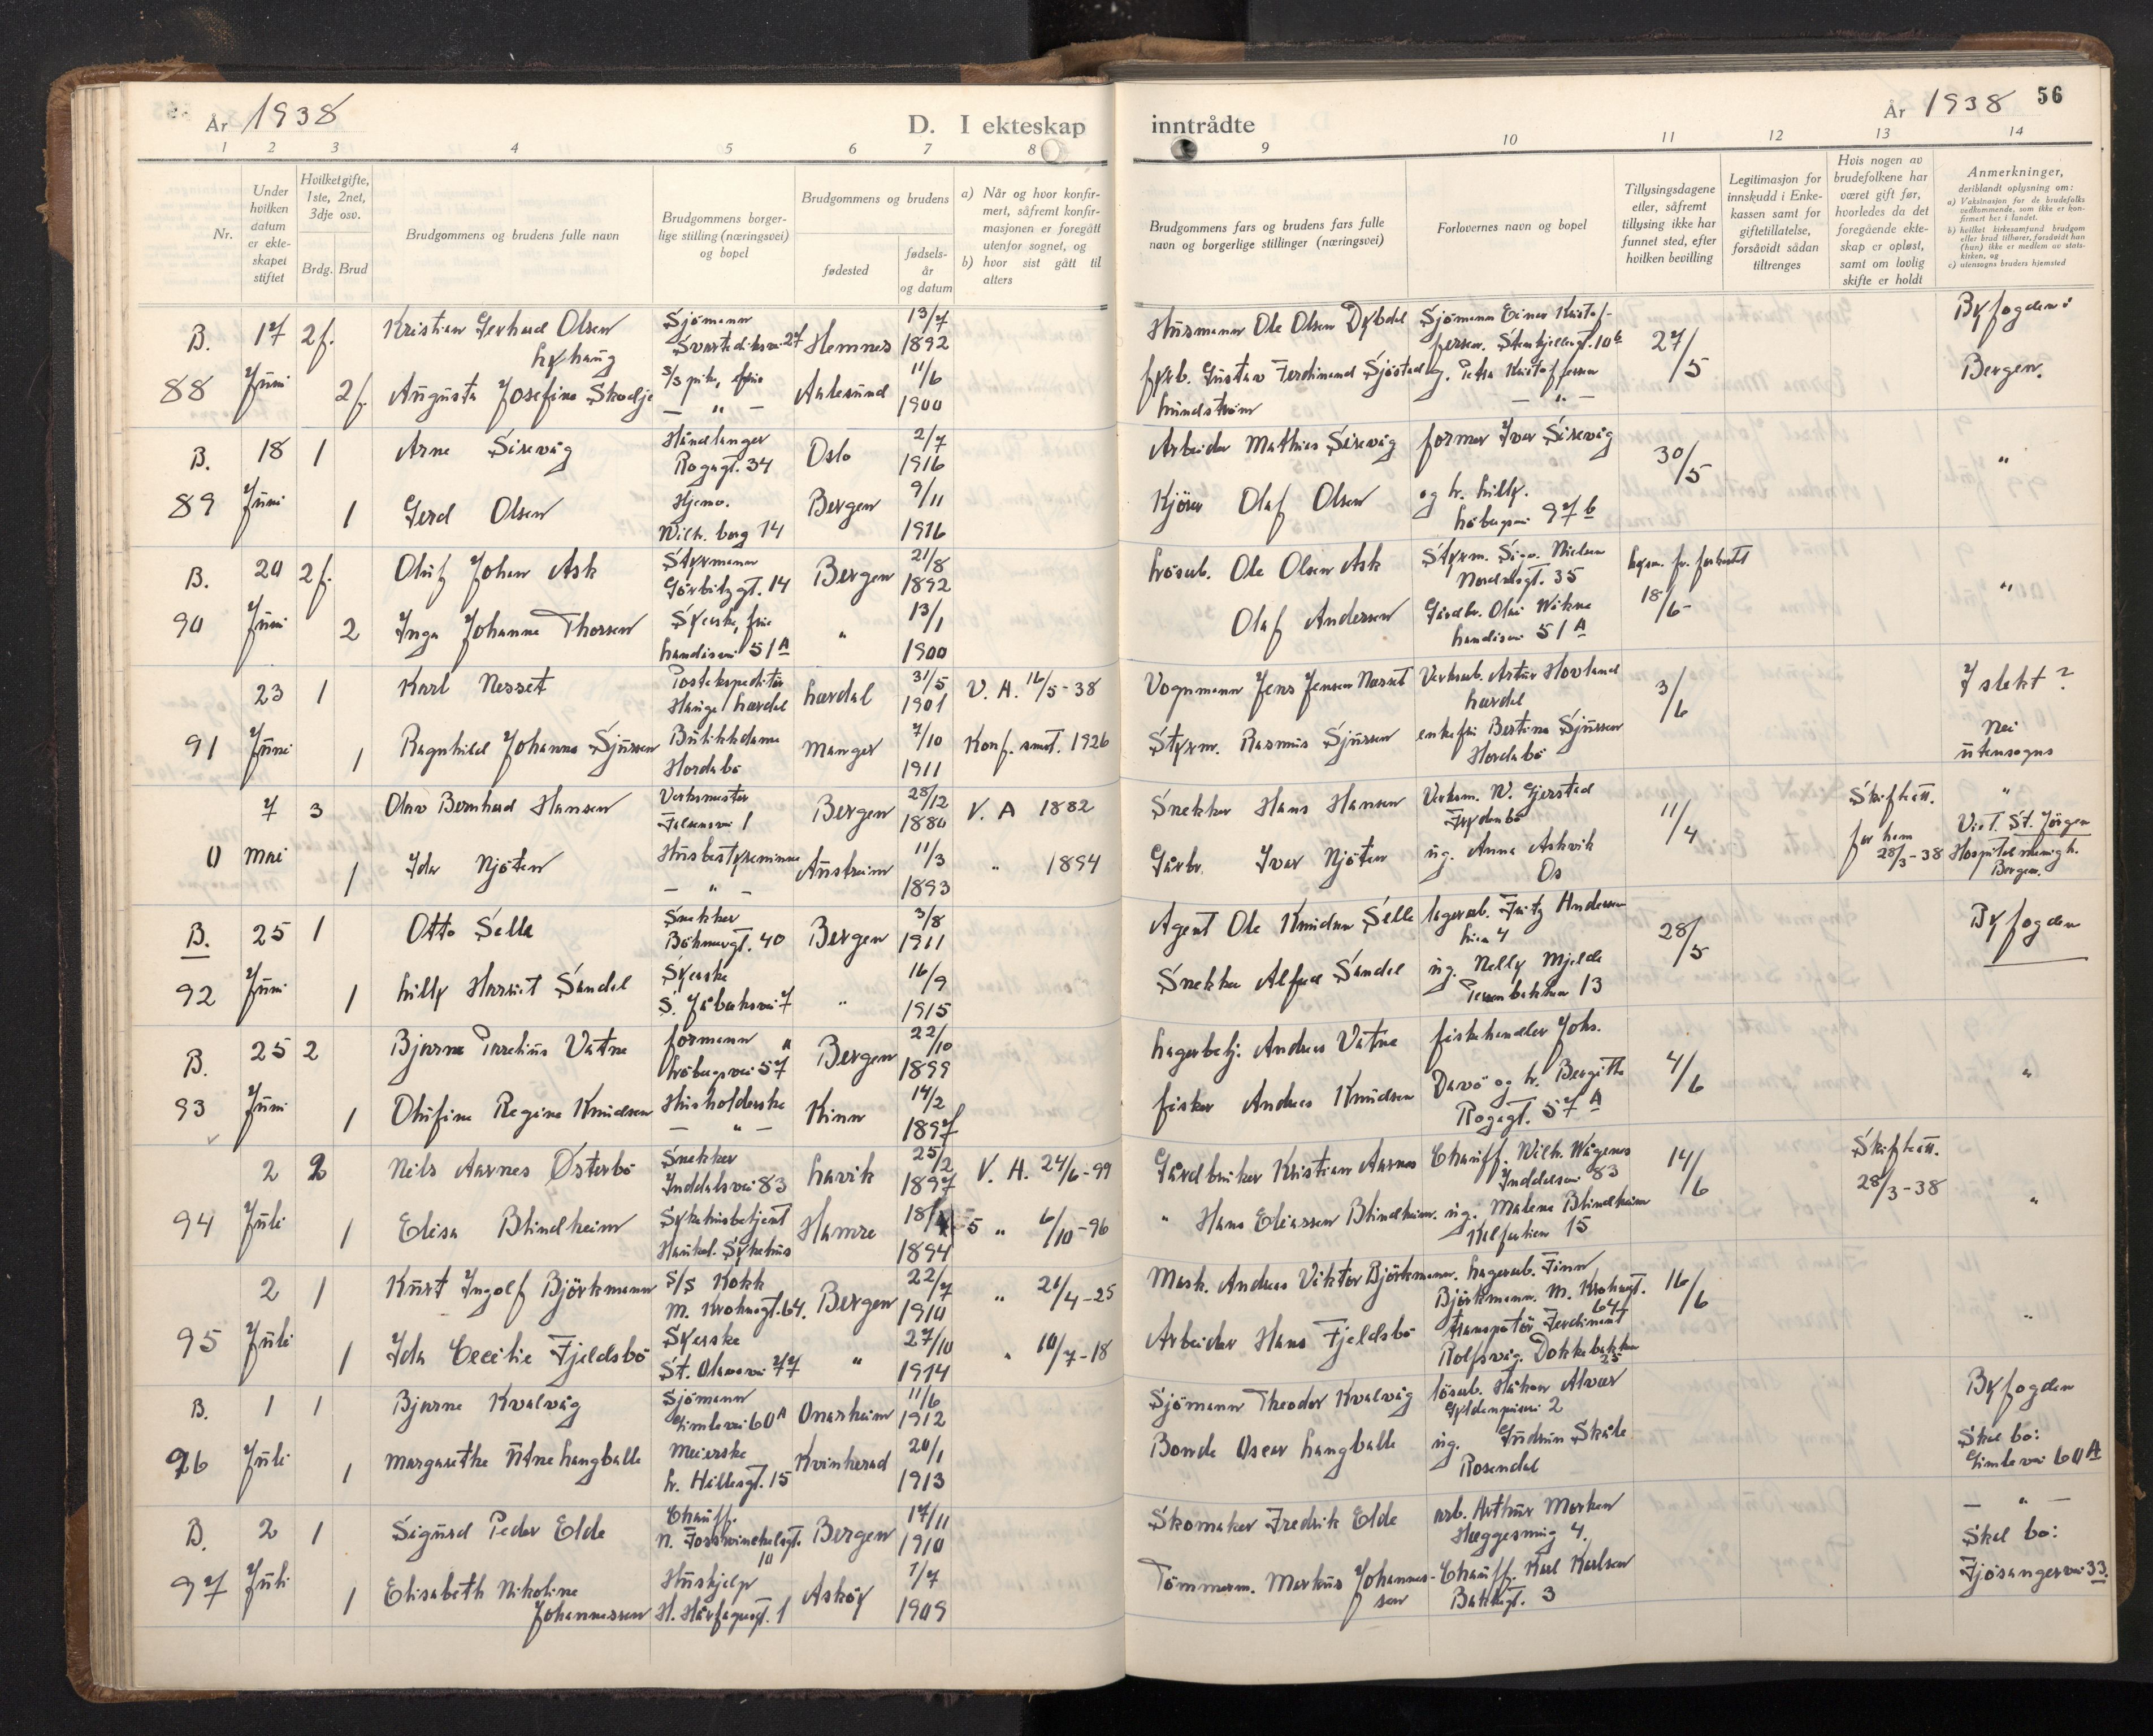 År 1938
D. I ekteskap
1 2 3 4 5 6 7 8
Nr.
Under hvilken datum er ekteskapet stiftet
Hvilket gifte, 1ste, 2net, 3dje osv.
Brdg. Brud
Brudgommens og brudens fulle navn
Brudgommens borgerlige stilling (næringsvei) og bopel
Brudgommens og brudens
fødested
fødselsår og datum
a) Når og hvor konfirmert, såfremt konfirmasjonen er foregått utenfor sognet, og
b) hvor sist gått til alters
B. 17 2f. Kristian Gerhard Olsen Sjömann Hemnes 13/7 1892
88 Juni 2f. Augusta Josefine Skodje Aalesund 11/6 1900
B. 18 1 Arne Sisevåg Håndlanger Rogagt. 34 Oslo 2/7 1916
89 Juni 1 Gerd Olsen Hjemv. Wilh. berg 14 Bergen 9/11 1916
B. 20 2f. Oluf Johan Ask Styrmann Görbitzgt. 14 Bergen 21/8 1892
90 Juni 2 Inga Johanne Thorsen Syerske, frue Landåsvei 51A " 13/1 1900
23 1 Karl Nesset Postekspeditör Hauge Lærdal Lærdal 31/5 1901 V. A. 16/5-38
91 Juni 1 Ragnhild Johanna Sjursen Butikkdame Hordabö Manger 7/10 1911 Konf. smst. 1926
7 3 Olav Bernhard Hansen Verksmester 1 Bergen 28/12 1880 V. A 1882
0 Mai 1 Ida Njöten Husbestyrerinne — " — Austrheim 11/3 1893 " 1894
B. 25 1 Otto Selle Snekker Böhmergt. 40 Bergen 3/8 1911
92 Juni 1 Lilly Harriet Sandal Syerske S. Jåbæksvei 7 " 16/9 1915
B. 25 2 Bjarne Vatne Formann Löbergsvei 57 Bergen 22/10 1899
93 Juni 1 Olufine Regine Knudsen Husholderske — " — Kinn 14/2 1897
2 2 Nils Aarnes Österbö Snekker Inddalsvei 83 Lavik 25/2 1897 V. A. 24/6-99
94 Juli 1 Elisa Blindheim Sykehusbetjent Haukel. Sykehus Hamre 18/5 1894 " 6/10-96
2 1 Kurt Ingolf Björkmann S/S Kokk M. Krohnsgt. 64. Bergen 22/7 1910 " 21/4-25
95 Juli 1 Ida Cecilie Fjeldsbö Syerske St. Olavsvei 77 " 27/10 1914 " 10/7-18
B. 1 1 Bjarne Kvalvåg Sjömann Gimlevei 60A Onarheim 11/6 1912
96 Juli 1 Margarethe Utne Langballe Meierske L. Hillesgt. 15 Kvinherad 20/1 1913
B. 2 1 Sigurd Peder Elde Chauff. 10 Bergen 17/11 1910
97 Juli 1 Elisabeth Nikoline Johannessen Hushjelp H. Hårfagresgt. 1 Asköy 7/7 1909
inntrådte
År 1938 56
9 10 11 12 13 14
Brudgommens fars og brudens fars fulle navn og borgerlige stillinger (næringsvei)
Forlovernes navn og bopel
Tillysingsdagene eller, såfremt tillysing ikke har funnet sted, efter hvilken bevilling
Legitimasjon for innskudd i Enkekassen samt for giftetillatelse, forsåvidt sådan tiltrenges
Hvis nogen av brudefolkene har været gift før, hvorledes da det foregående ekteskap er opløst, samt om lovlig skifte er holdt
Anmerkninger, deriblandt oplysning om:
a) Vaksinasjon for de brudefolks vedkommende, som ikke er konfirmert her i landet.
b) hvilket kirkesamfund brudgom eller brud tilhører, forsåvidt han (hun) ikke er medlem av statskirken, og
c) utensogns bruders hjemsted
Husmann Ole Olsen Dybdal Sjömann Einar Kristoffersen. 10b 27/5 Byfogden i
fyrb. Gustav Ferdinand Sjöstad Lundström og Petra Kristoffersen — " — Bergen.
Arbeider Mathias Sisevåg former Iver Sisevåg 30/5 "
Kjörer Olaf Olsen og h. Lilly. Löbergsvei 97b
Lösarb. Ole Olsen Ask Styrm. Sigv. Nielsen Nordnesgt. 35 18/6- "
Olaf Andersen Gårdbr. Olai Wikne Landåsvei 51A
Vognmann Jens Jensen Nesset Verksarb. Artur Hovland Lærdal 3/6 I slekt?
Styrm. Rasmus Sjursen enkefru Bertine Sjursen Hordabö Nei utensogns
Snekker Hans Hansen Verksm. N. Gjerstad Frydenbö 11/4 Skifteatt. "
Gårbr. Ivar Njöten ug. Anna Askvik Os for ham 28/3-38 Viet. St. Jörgen Hospitalmenigh. Bergen.
Agent Ole Knudsen Selle lagerarb. Fritz Andersen Lien 4 28/5 Byfogden
Snekker Alfred Sandal ug. Nelly Mjelde 13
Lagerbetj. Andreas Vatne fiskehandler Johs. 4/6 "
fisker Andreas Knudsen Davö og h. Bergitte Rogagt. 57A
Gårdbruker Kristian Aarnes Chauff. Wilh. Wågenes Inddalsvei 83 14/6 Skifteatt. 28/3-38 "
" Hans Eliassen Blindheim. ug. Malene Blindheim Kalfarlien 15
Mask. Andreas Viktor Björkmann. Lagerarb. Finn Björkmann. M. Krohnsgt. 64 16/6 "
Arbeider Hans Fjeldsbö transportör Ferdinant Rolfsvåg. Dokkebakken 25
Sjömann Theodor Kvalvåg lösarb. Håkon Alvær Gyldenprisvei 2 Byfogden
Bonde Oscar Langballe ug. Gudrun Skåle Rosendal Skal bo: Gimlevei 60A
Skomaker Fredrik Elde arb. Arthur Marken Hæggesmug 4. — " —
Tömmerm. Markus Johannessen Chauff. Karl Karlsen Bakkegt. 3 Skal bo: Fjösangervei 33.